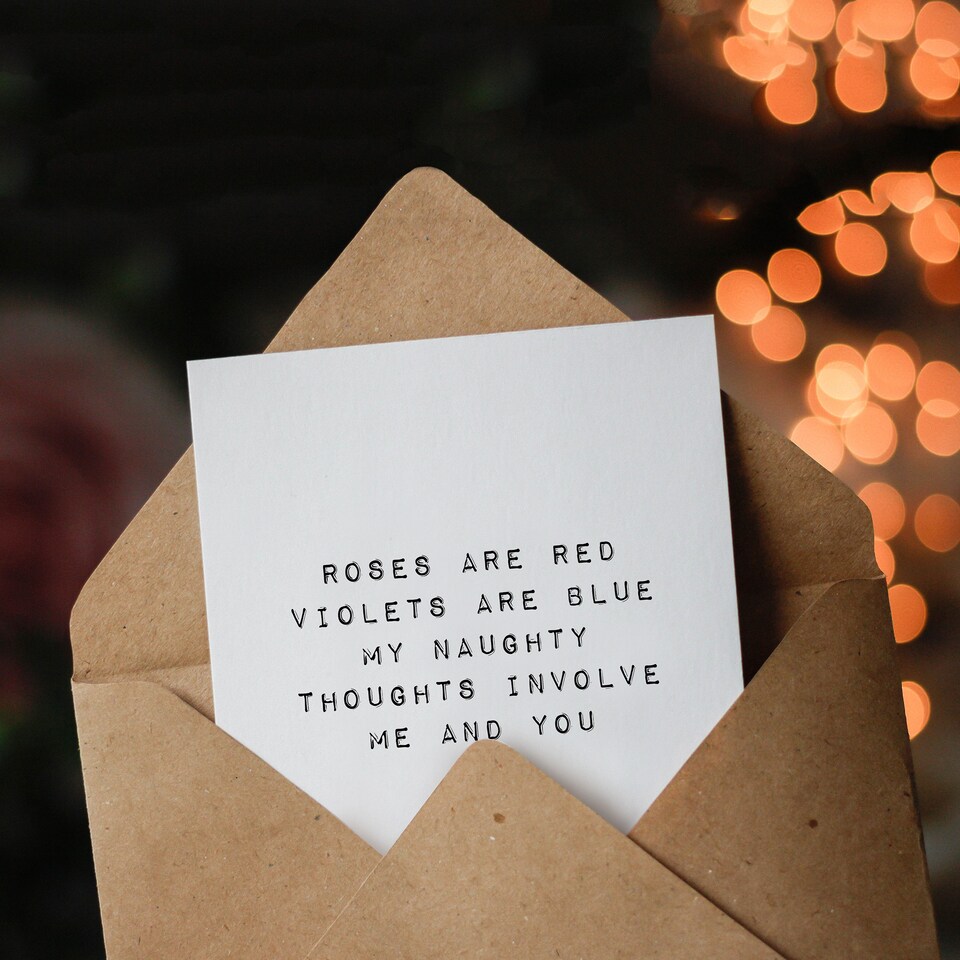 ROSES ARE RED
VIOLETS ARE BLUE
MY NAUGHTY
THOUGHTS INVOLVE
ME AND YOU